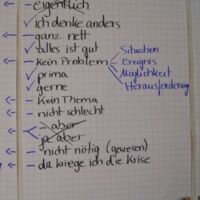 ← – eigentlich
✓ ich denke anders
← – ganz nett
✓ alles ist gut
← – kein Problem
Situation
Ereignis
Möglichkeit
Herausforderung
✓ prima
✓ gerne
← – Kein Thema
← – nicht schlecht
← – aber
ja aber
← – nicht nötig (gewesen)
– da kriege ich die Krise